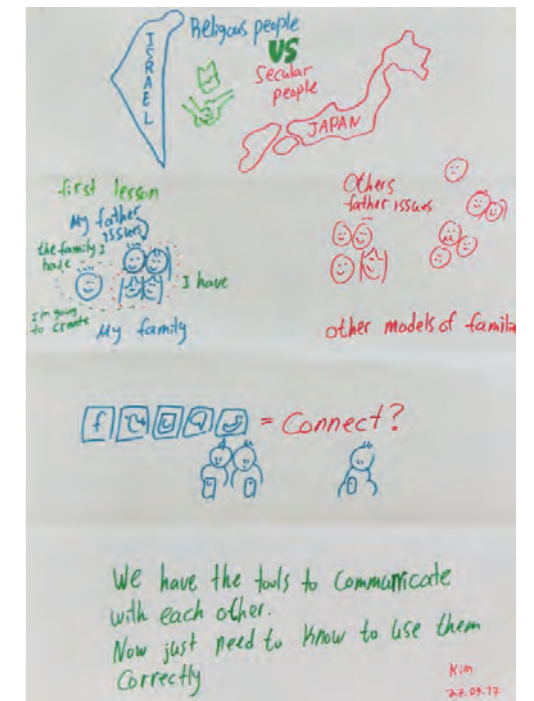 ISRAEL
Religous people
VS
Secular
people
JAPAN
first lesson
My father
issues
the family I
I have
I'm going
to create
My family
Others
father issues
other models of famili
f
= Connect?
We have the tools to communicate
with each other.
Now just need to know to use them
Correctly
Kim
27.09.17